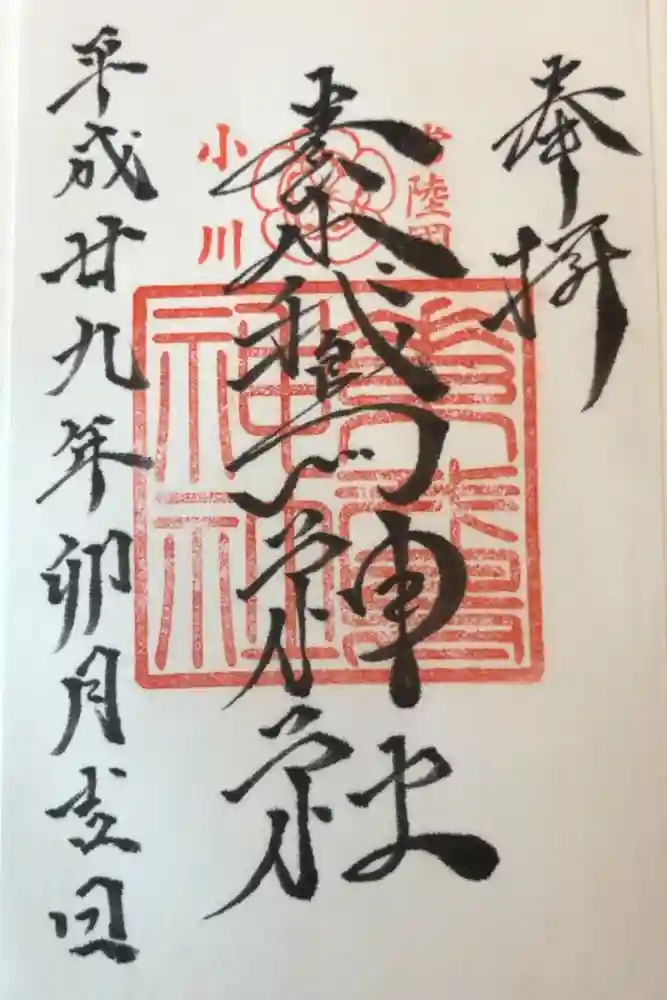 奉拝
常陸国
小川
素鵞神社
素鵞神社
平成廿九年卯月吉日